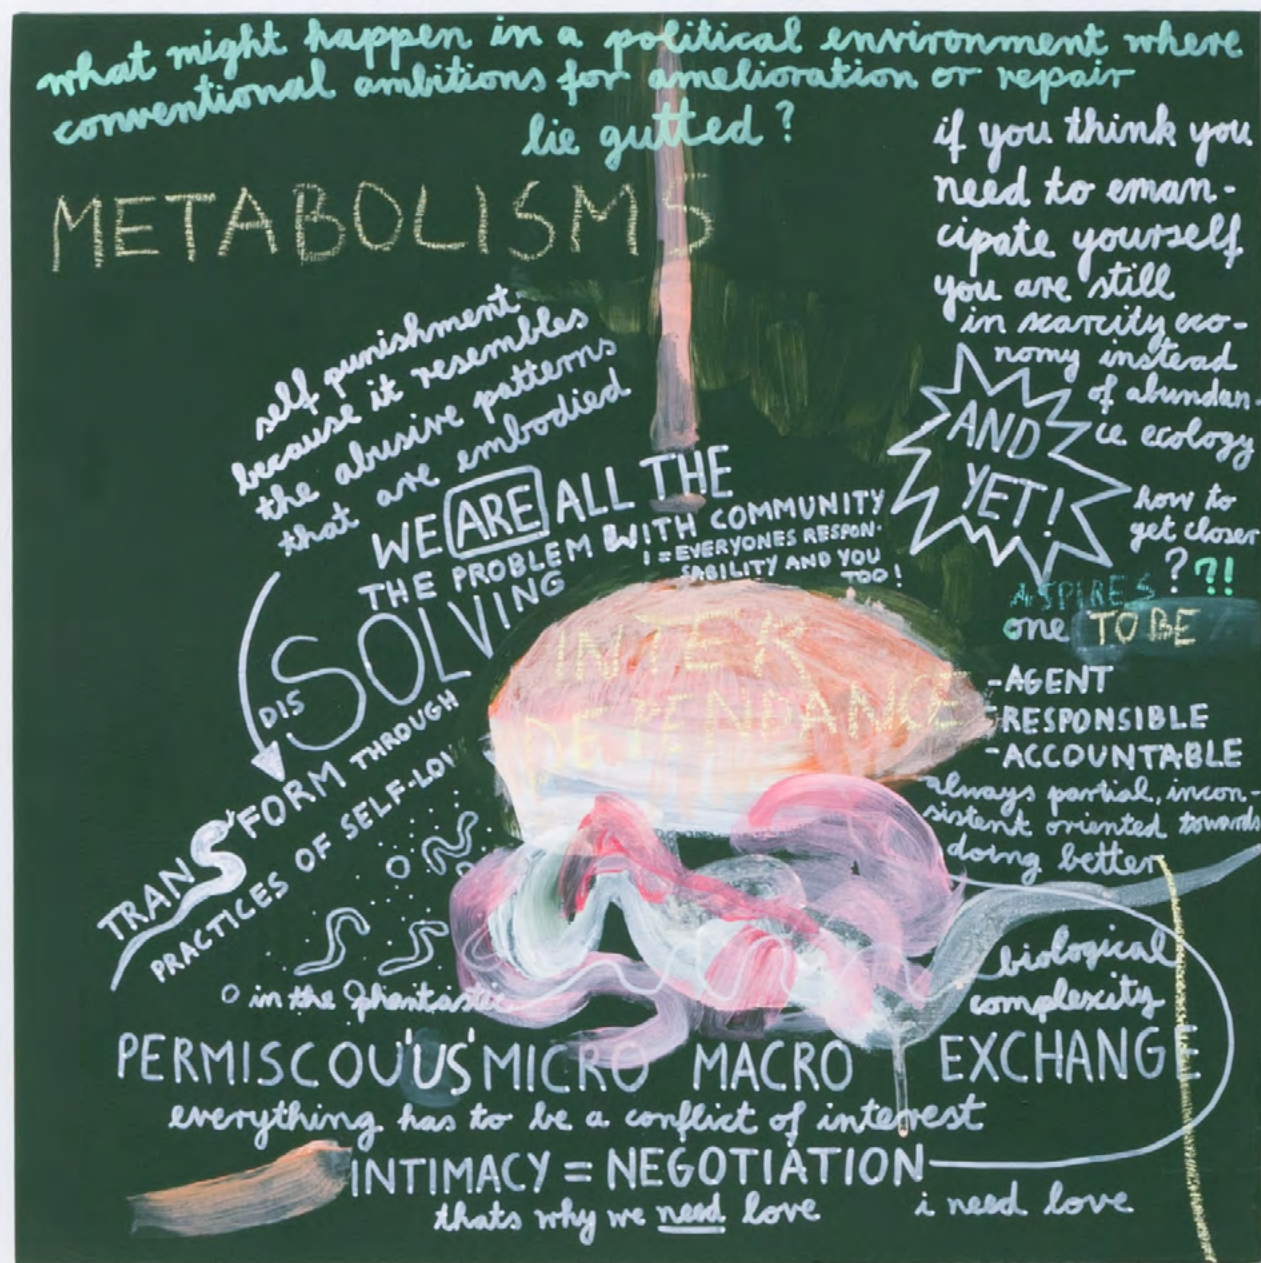 what might happen in a political environment where
conventional ambitions for amelioration or repair
lie gutted?
METABOLISMS
if you think you
need to eman-
cipate yourself
you are still
in scarcity eco-
nomy instead
of abundan-
ce ecology
AND
YET!
how to
get closer
? ?!
self punishment
because it resembles
the abusive patterns
that are embodied
WE ARE ALL THE
THE PROBLEM WITH COMMUNITY
I = EVERYONES RESPON-
SABILITY AND YOU
TOO!
SOLVING
DIS
TRANS'FORM THROUGH
PRACTICES OF SELF-LOV
INTER
DEPENDANCE
ASPIRES
one TO BE
-AGENT
-RESPONSIBLE
-ACCOUNTABLE
always partial, incon-
sistent oriented towards
doing better
biological
complexity
in the phantastic
PERMISCOU'US' MICRO MACRO EXCHANGE
everything has to be a conflict of interest
INTIMACY = NEGOTIATION
thats why we need love
i need love